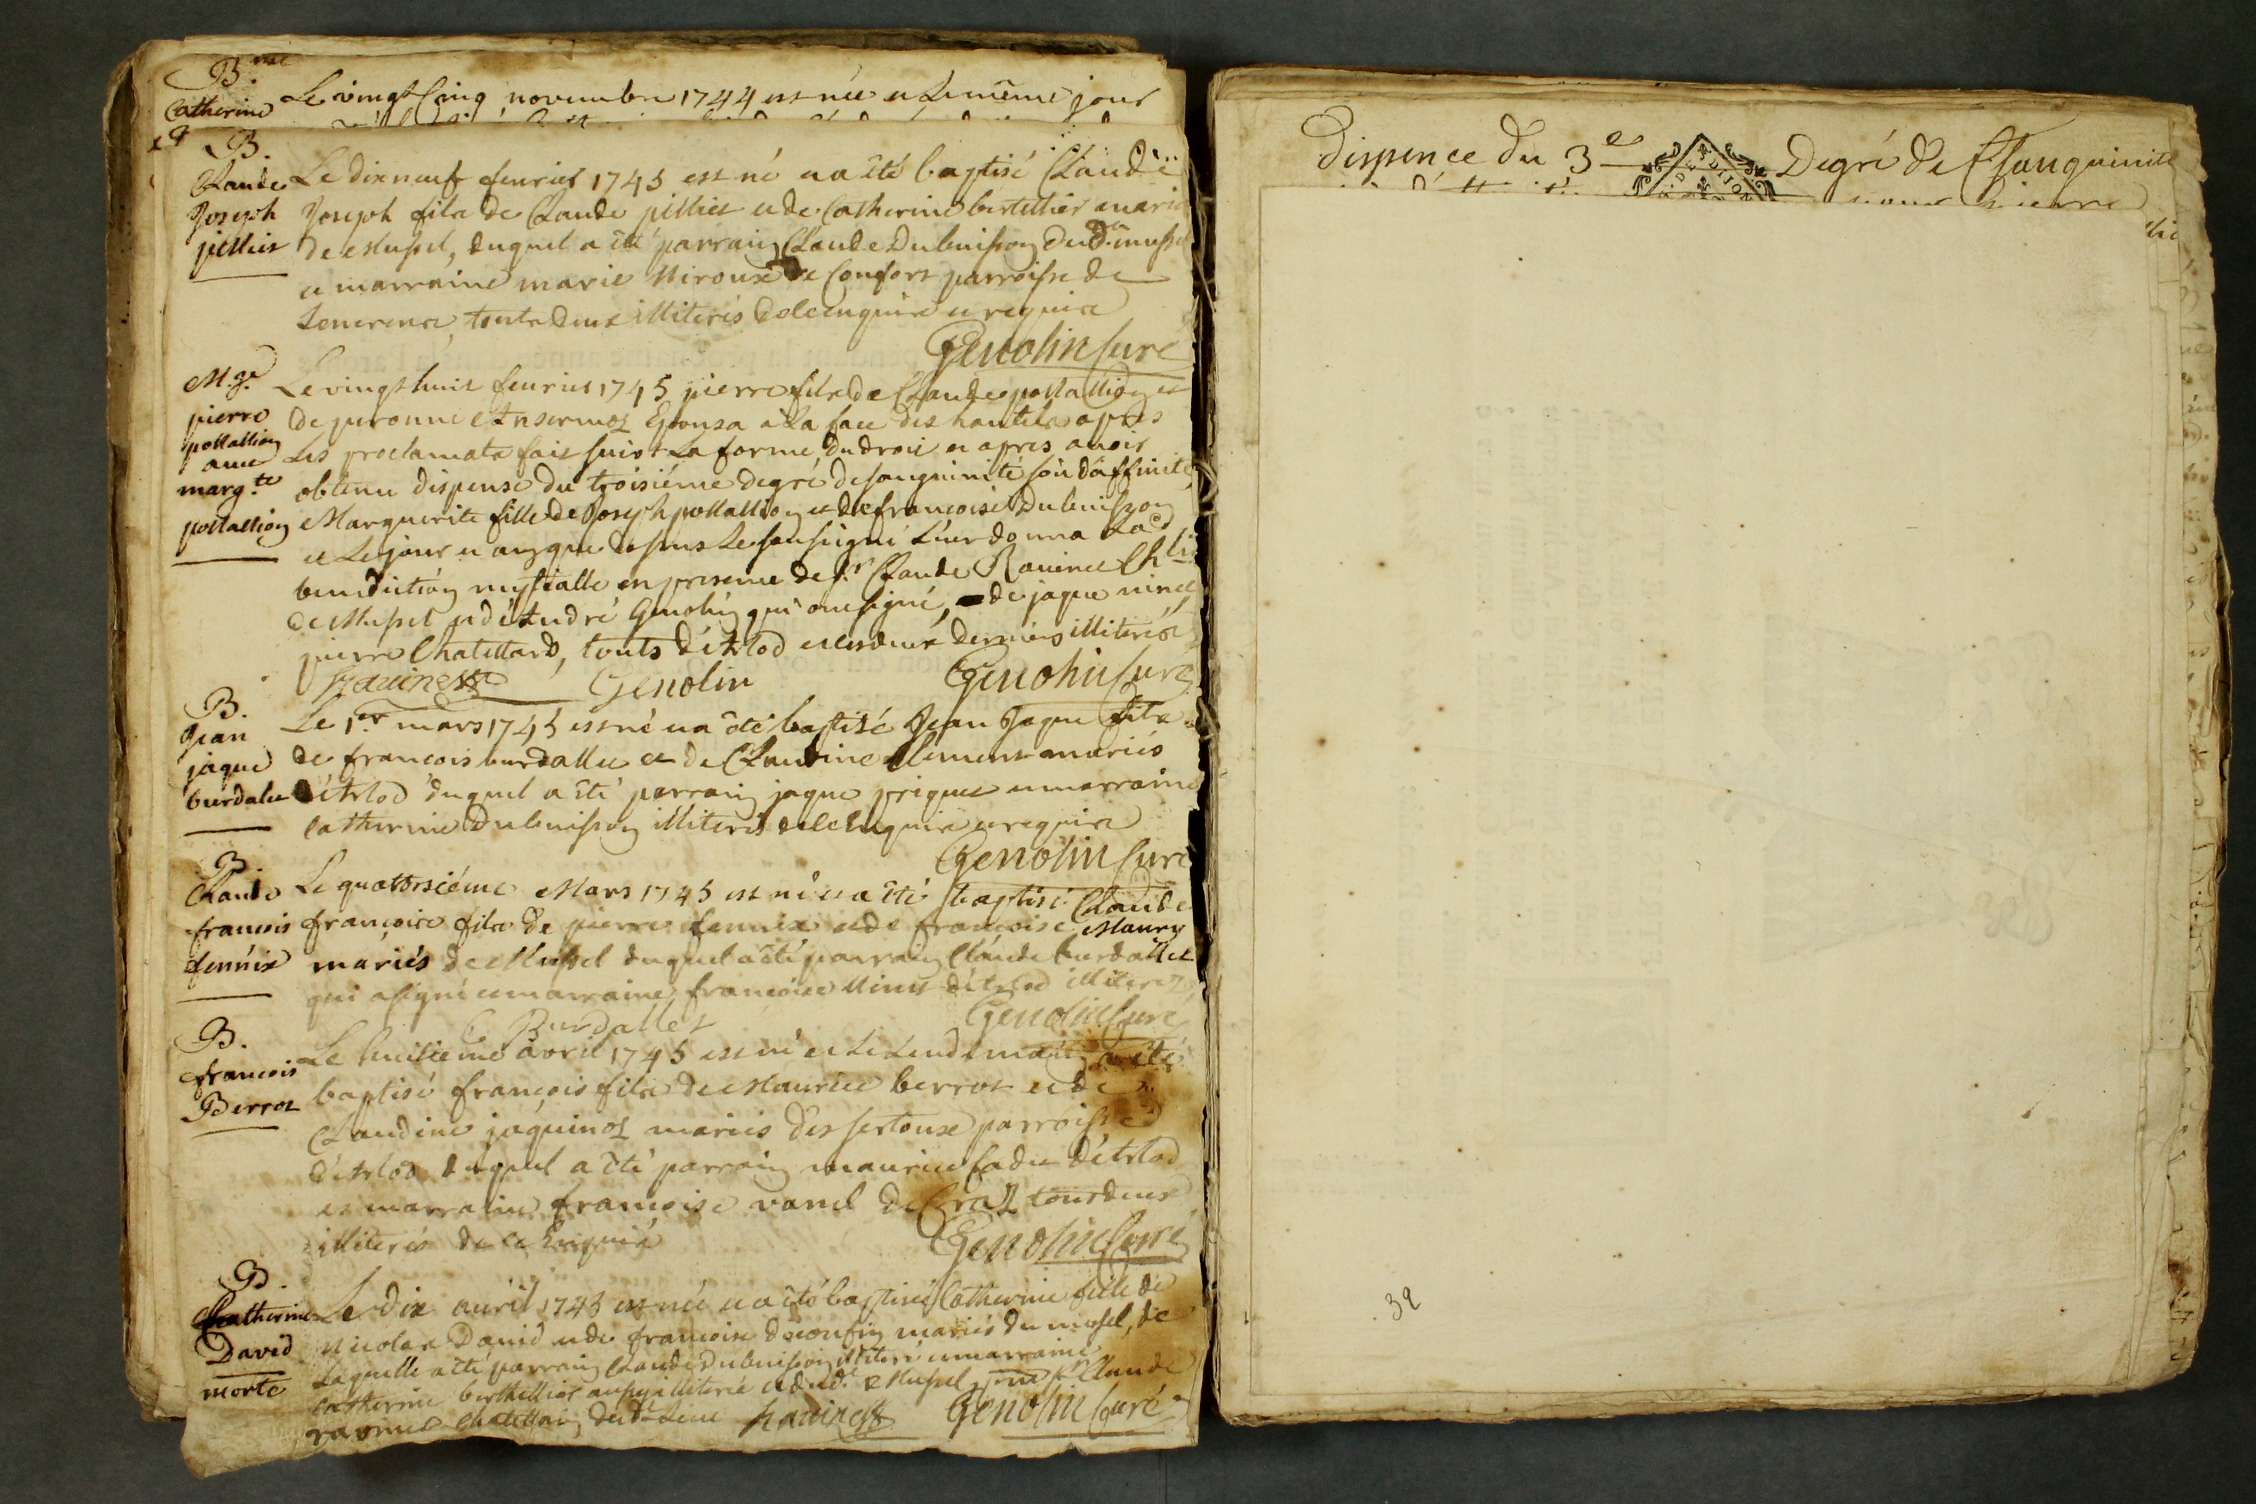 B.me
Catherine
Le vingt Cinq novembre 1744 est née et le même jour
B.
Claude
Joseph
pilliet
Le dix neuf feurier 1745 est né et a été baptisé Claude
Joseph fils de Claude pilliet et de Catherine bertethier mariés
de Mussel, duquel a été parrain Claude Dubuisson dud.t mussel
et marraine marie Niroux de Confort parroisse de
touts deux illiterés de ce enquis et requis
Genolin Curé
M.ge
pierre
pollallion
avec
marg.te
pollallion
Le vingt huit feurier 1745 pierre fils de Claude pollallion et
de peronne Ansermoz Epousa à la face des hautels après
Les proclamats fait suivt La forme du droit et apres avoir
obtenu dispense du troisiéme degré de sanguinité soit d'affinité
Marguerite fille de Joseph pollallion et de françoise Dubuisson
et Le jour et an que dessus Le soussigné Leur donna La
benediction nuptialle en presence de s.r Claude Ravinet Ch.lain
de Mussel et d'André Genolin qui ont signé, de jaque ninet
pierre Chatellard, touts d'Arlod et les deux derniers illiterés
Ravinet Genolin Genolin Curé
B.
Jean
jaque
burdalet
Le 1.er mars 1745 est né et a été baptisé Jean Jaque fils
de françois burdallet et de Claudine Clement mariés
d'Arlod duquel a été parrain jaque priques et marraine
Catherine Dubuisson illiterés de ce Enquis et requis
Genolin Curé
B.
Claude
francois
fennix
Le quattorsiéme Mars 1745 est né et a été baptisé Claude
françois fils de pierre fennix et de françoise Maury
mariés de Mussel duquel a été parrain Claude burdallet
qui a signé et marraine françoise Ninet d'Arlod illiterez
C Burdallet Genolin Curé
B.
françois
Berrot
Le huitieme avril 1745 est né et Le Lendemain a été
baptisé françois fils de Maurice berrot et de
Claudine jaquinot mariés des sertoux parroisse
d'Arlod duquel a été parrain maurice d'Arlod
et marraine françoise vanel de Craz tous deux
illiterés de ce Enquis
Genolin Curé
B.
Catherine
David
morte
Le dix auril 1745 est née et a été baptisée Catherine fille de
Nicolas David et de françoise mariés du mussel, de
Laquelle a été parrain Claude Dubuisson illiteré et marraine
Catherine berthellier aussy illiterée dud.t Mussel s.r Claude
ravinet Chatellain dud.t Lieu Ravinet Genolin Curé
Dispence du 3e Degré de Csanguinité
32